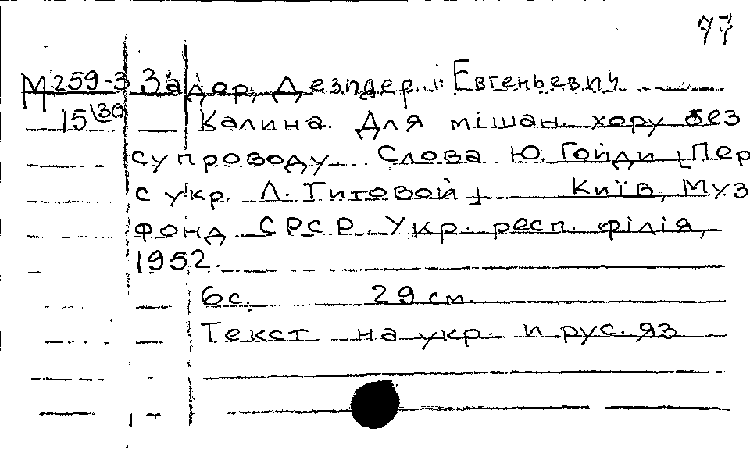 77
М 259-3 Задор, Дезидер Евгеньевич
15 Калина. Для мішан. хору без
супроводу. Слова Ю. Гойди [Пер
с укр. Л. Титовой] Київ, Муз
фонд СРСР. Укр. респ. філія,
1952.
6с. 29 см.
Текст на укр. и рус. яз